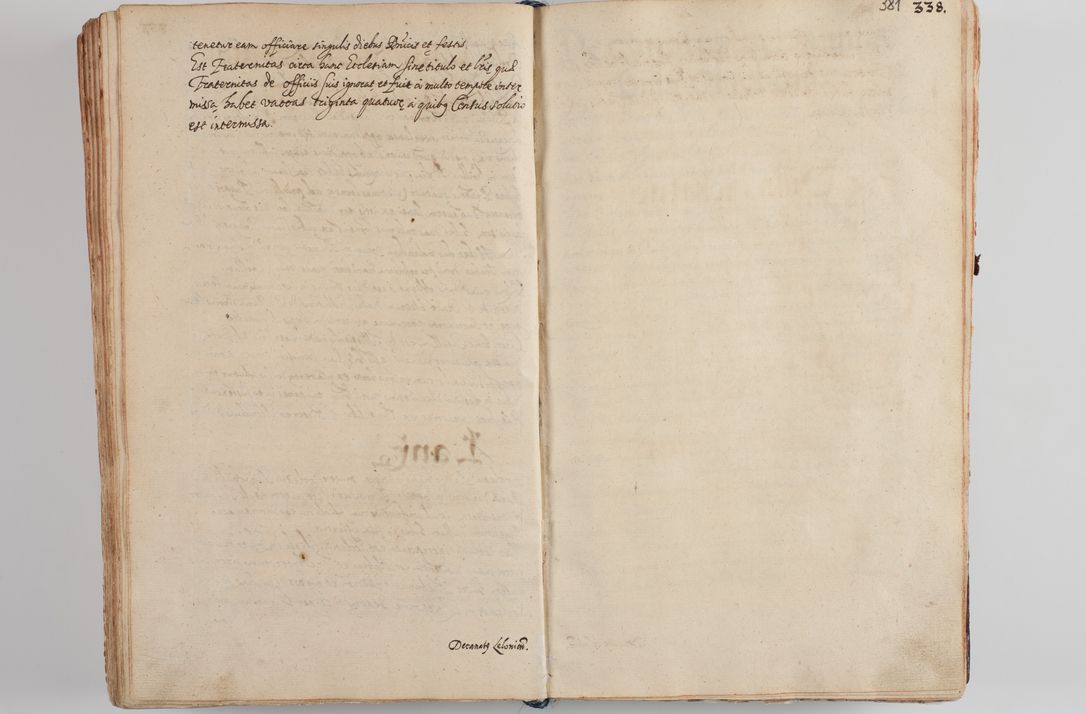 tenetur eam officiare singulis diebus Dnicis et festis.
Est Fraternitas circa hanc Ecclesiam sine titulo et lris quæ
Fraternitas de officiis suis ignorat et fuit à multo tempore inter
missa, habet vaccas triginta quatuor à quibq Census solutio
est intermissa.
Decanatq Lelovien.
381 338.